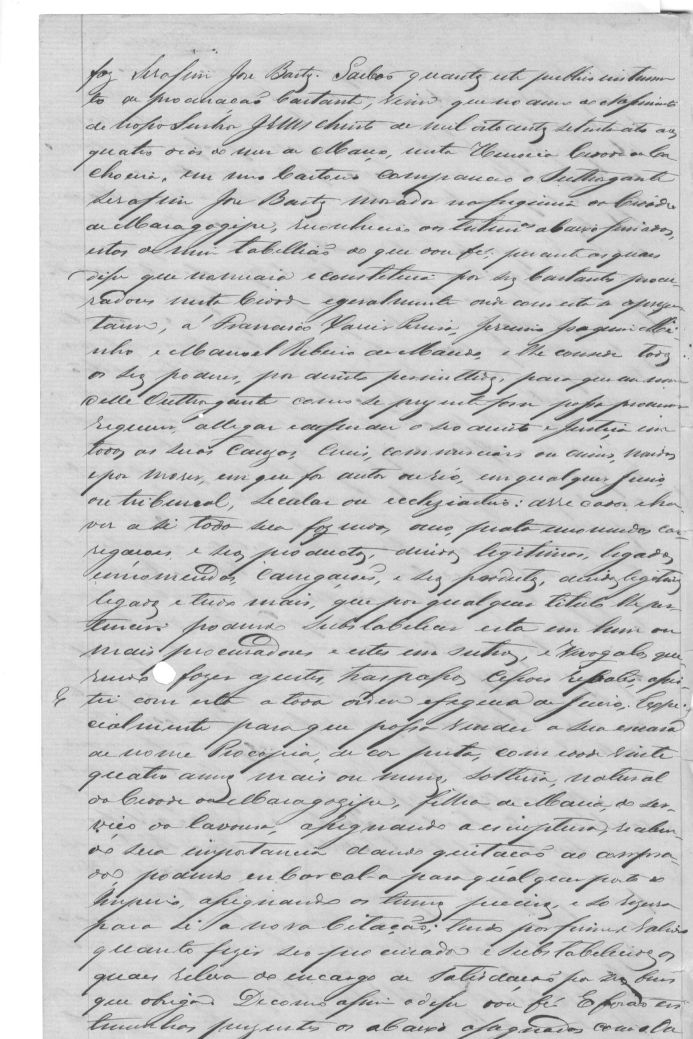 faz Serafim Jose Bastz. Saibaõ quantz este publico instrumen
to de procuraçaõ bastante virem que no anno do Nascimento
de Nosso Senhor Jesus Christo de mil oito centz setenta oito aos
quatro dias do mez de Março, nesta Heroica Cidade da Ca
choeira, em meo Cartorio compareceo o Outhorgante
Serafim Jose Bastz morador na freguezia da Cidade
de Maragogipe, reconhecido das testemª abaixo firmadas,
estas de mim tabelliaõ do que dou fé: perante as quaes
disse que nomeava e constituia por sêz bastantes procu
radores nesta Cidade e geralmente onde com esta se aprezen
tarem, á Francisco Xavier , Jeronimo Joaquim Mi
nho, e Manoel Ribeiro de Macedo, e lhe concede todz
os sêz poderes, por direito permittidz, para que em nome
delle Outhorgante como se prezente fora possa procurar
requerer, allegar e defender o seo direito e Justiça em
todas as suas Cauzas Civeis, commerciaes ou crimes, movidas
e por mover, em que for autor ou réo, em qual quer Juizo
ou tribunal, Secular ou ecclesiastico: arrecadar e ha
ver a si toda sua fazenda, ouro, prata encomendas car
regaçoes, e sêz productz, dividas legitimas, legados
encomendas, Carregaçoes, e sêz productz, dividas legitimas
legados e tudo mais, que por qual quer titulo lhe per
tencer: podendo substabelecer esta em hum ou
mais procuradores e estes em outrz, e revogalos que
rendo fazer ajustes, traspassos, Cessoes rebates, assis
tir com esta a toda ordem e figura de Juizo. Espe
cialmente para que possa vender a sua escrava
de nome Procopia, de cor preta, com idade vinte
quatro annz mais ou menz, Solteira, natural
da Cidade de Maragogipe, filha de Maria, do ser
viço da lavoura, assignando a escriptura, receben
do sua importancia dando quitaçaõ ao compra
dor podendo embarcal-a para qual quer porto do
Imperio, assignando os termz precizz, e só rezerva
para si a nova Citaçaõ: tendo por firme e valiozo
quanto fizer seo procurador e substabelecidos os
quaes releva do encargo de satisdaçaõ por sêz bens
que obrigaõ. De como assim o disse dou fé. E foraõ tes
temunhas prezentes os abaixo assignados com ella